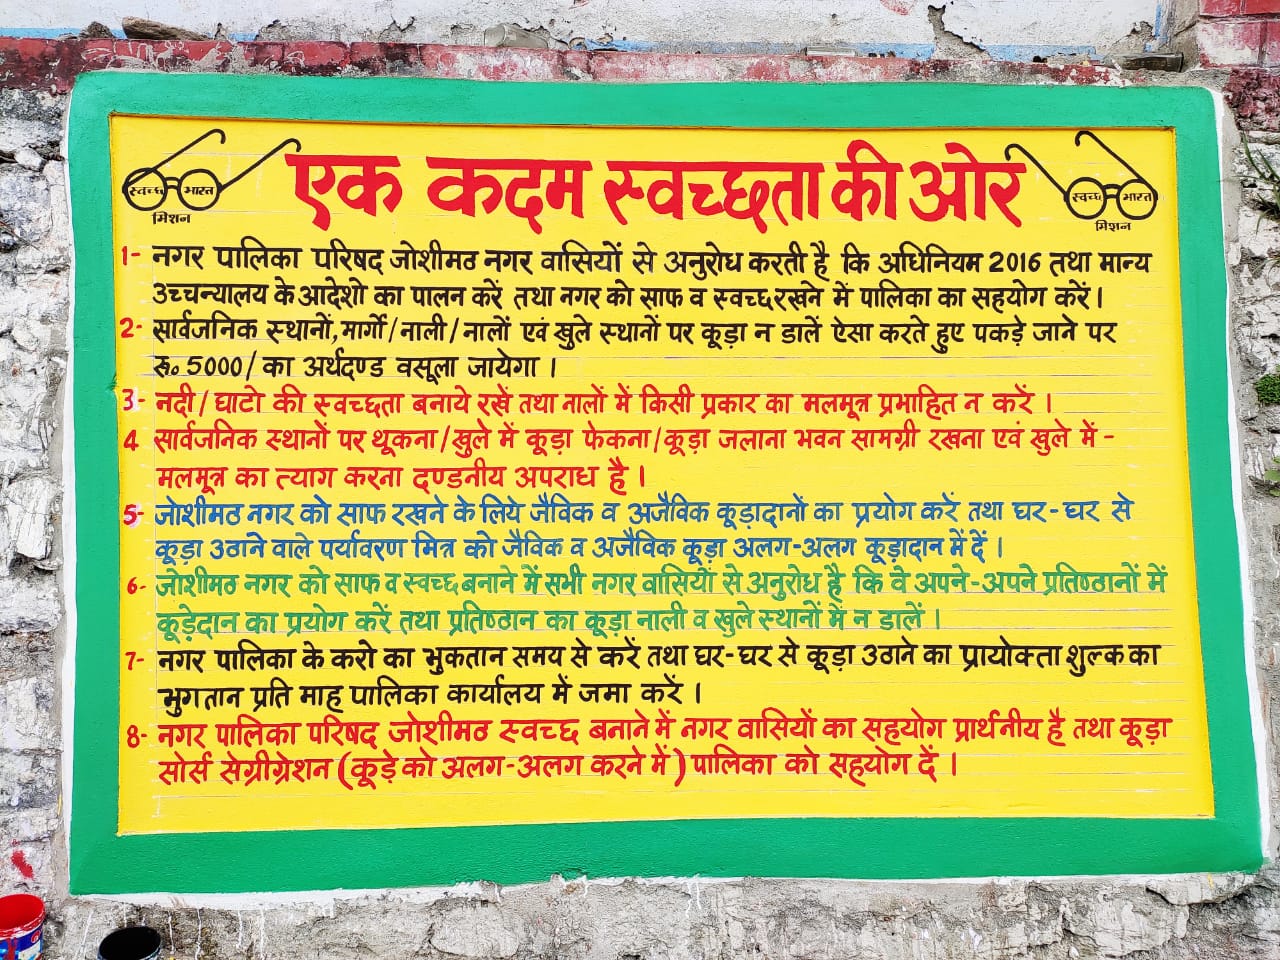 एक कदम स्वच्छता की ओर
स्वच्छ भारत
मिशन
स्वच्छ भारत
मिशन
1- नगर पालिका परिषद जोशीमठ नगर वासियों से अनुरोध करती है कि अधिनियम 2016 तथा मान्य
उच्चन्यालय के आदेशो का पालन करें तथा नगर को साफ व स्वच्छ रखने में पालिका का सहयोग करें।
2- सार्वजनिक स्थानों,मार्गो/नाली/नालों एवं खुले स्थानों पर कूड़ा न डालें ऐसा करते हुए पकड़े जाने पर
रू० 5000/ का अर्थदण्ड वसूला जायेगा ।
3- नदी/घाटो की स्वच्छता बनाये रखें तथा नालों में किसी प्रकार का मलमूत्र प्रभाहित न करें ।
4 सार्वजनिक स्थानों पर थूकना/खुले में कूड़ा फेकना/कूड़ा जलाना भवन सामग्री रखना एवं खुले में -
मलमूत्र का त्याग करना दण्डनीय अपराध है ।
5- जोशीमठ नगर को साफ रखने के लिये जैविक व अजैविक कूड़ादानों का प्रयोग करें तथा घर-घर से
कूड़ा उठाने वाले पर्यावरण मित्र को जैविक व अजैविक कूड़ा अलग-अलग कूड़ादान में दें ।
6- जोशीमठ नगर को साफ व स्वच्छ बनाने में सभी नगर वासियों से अनुरोध है कि वे अपने-अपने प्रतिष्ठानों में
कूड़ेदान का प्रयोग करें तथा प्रतिष्ठान का कूड़ा नाली व खुले स्थानों में न डालें ।
7- नगर पालिका के करो का भुकतान समय से करें तथा घर-घर से कूड़ा उठाने का प्रायोक्ता शुल्क का
भुगतान प्रति माह पालिका कार्यालय में जमा करें ।
8- नगर पालिका परिषद जोशीमठ स्वच्छ बनाने में नगर वासियों का सहयोग प्रार्थनीय है तथा कूड़ा
सोर्स सेग्रीग्रेशन (कूड़े को अलग-अलग करने में) पालिका को सहयोग दें ।